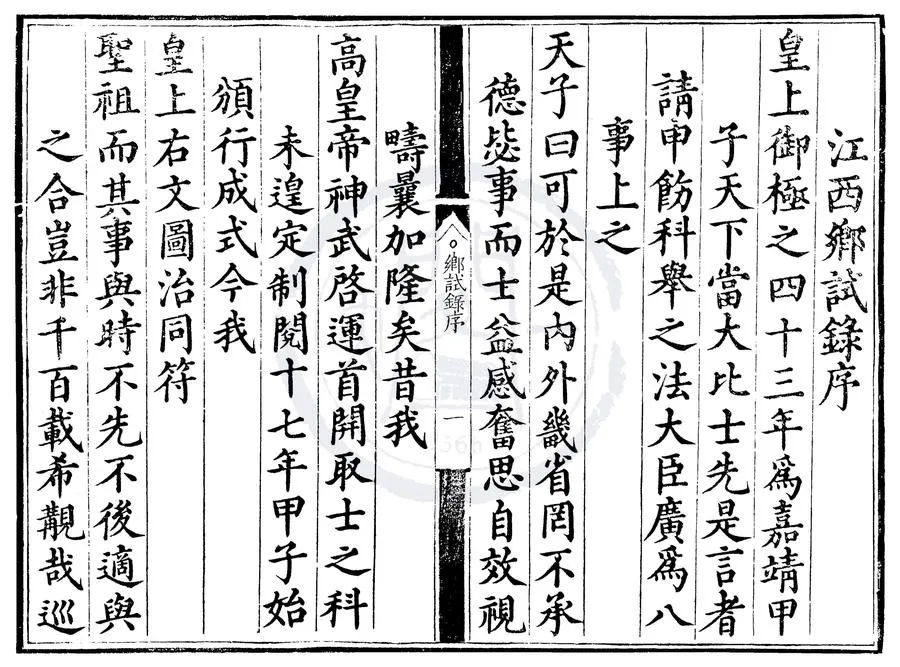 江西鄉試錄序
皇上御極之四十三年爲嘉靖甲
子天下當大比士先是言者
請申飭科舉之法大臣廣爲八
事上之
天子曰可於是內外畿省罔不承
德毖事而士益感奮思自效視
疇曩加隆矣昔我
鄉試錄序
一
高皇帝神武啓運首開取士之科
未遑定制閱十七年甲子始
頒行成式今我
皇上右文圖治同符
聖祖而其事與時不先不後適與
之合豈非千百載希覯哉巡